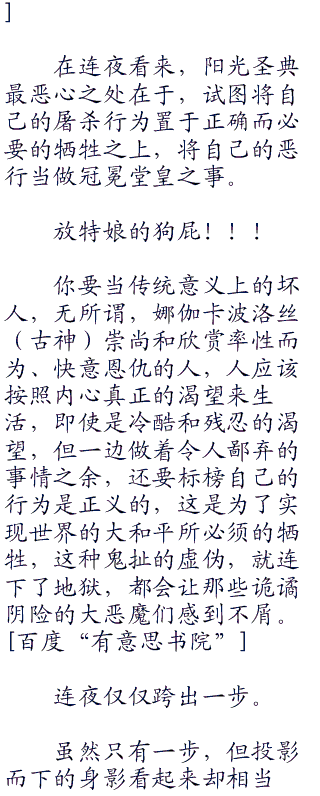 ]
在连夜看来，阳光圣典
最恶心之处在于，试图将自
己的屠杀行为置于正确而必
要的牺牲之上，将自己的恶
行当做冠冕堂皇之事。
放特娘的狗屁！！！
你要当传统意义上的坏
人，无所谓，娜伽卡波洛丝
（古神）崇尚和欣赏率性而
为、快意恩仇的人，人应该
按照内心真正的渴望来生
活，即使是冷酷和残忍的渴
望，但一边做着令人鄙弃的
事情之余，还要标榜自己的
行为是正义的，这是为了实
现世界的大和平所必须的牺
牲，这种鬼扯的虚伪，就连
下了地狱，都会让那些诡谲
阴险的大恶魔们感到不屑。
[百度“有意思书院”]
连夜仅仅跨出一步。
虽然只有一步，但投影
而下的身影看起来却相当